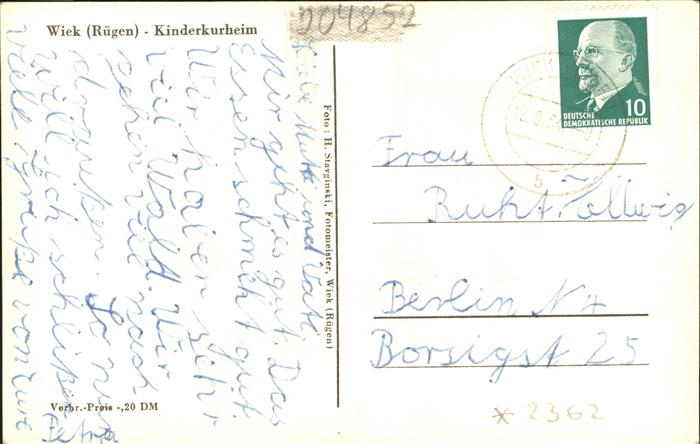 204852
Wiek (Rügen) - Kinderkurheim
Liebe Mutti und Vati
Mir geht es gut. Das
Essen schmekt gut.
Wir haben sehr
viel Wald. Wir
gehen viel nach
draußen. So nun
will ich schlißen
viele grüße von eure
Petra
Verbr.-Preis -,20 DM
Foto: H. Stavginski, Fotomeister, Wiek (Rügen)
WIEK
12.9.6
b
10
DEUTSCHE
DEMOKRATISCHE REPUBLIK
Frau
Berlin N 4
Borsigst. 25
* 2362